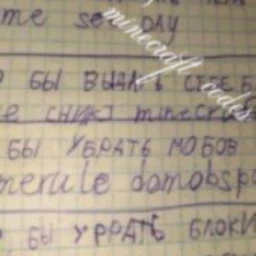 me set DAY
minecraft codes
БЫ ВЫДАТЬ СЕБЕ
minecraf
БЫ УБРАТЬ МОБОВ
merule domobsp
БЫ УРРАТЬ БЛОКИ